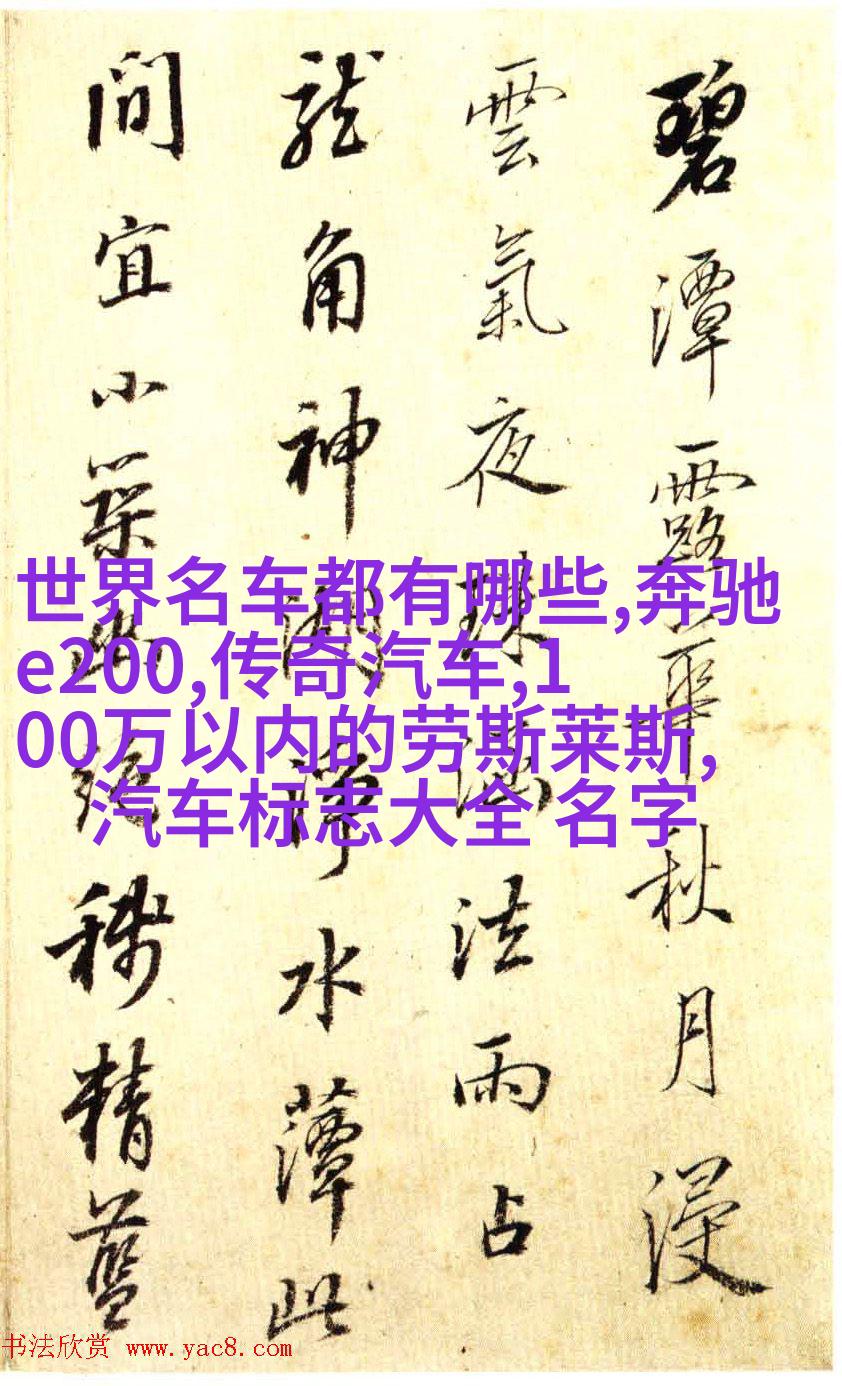 碧潭露華秋月浸
雲氣夜珠法雨占
龍角神湖淨水藫此
間宜小築幽稱精藍
世界名车都有哪些,奔驰
e200,传奇汽车,1
00万以内的劳斯莱斯,
汽车标志大全 名字
书法欣赏 www.yac8.com